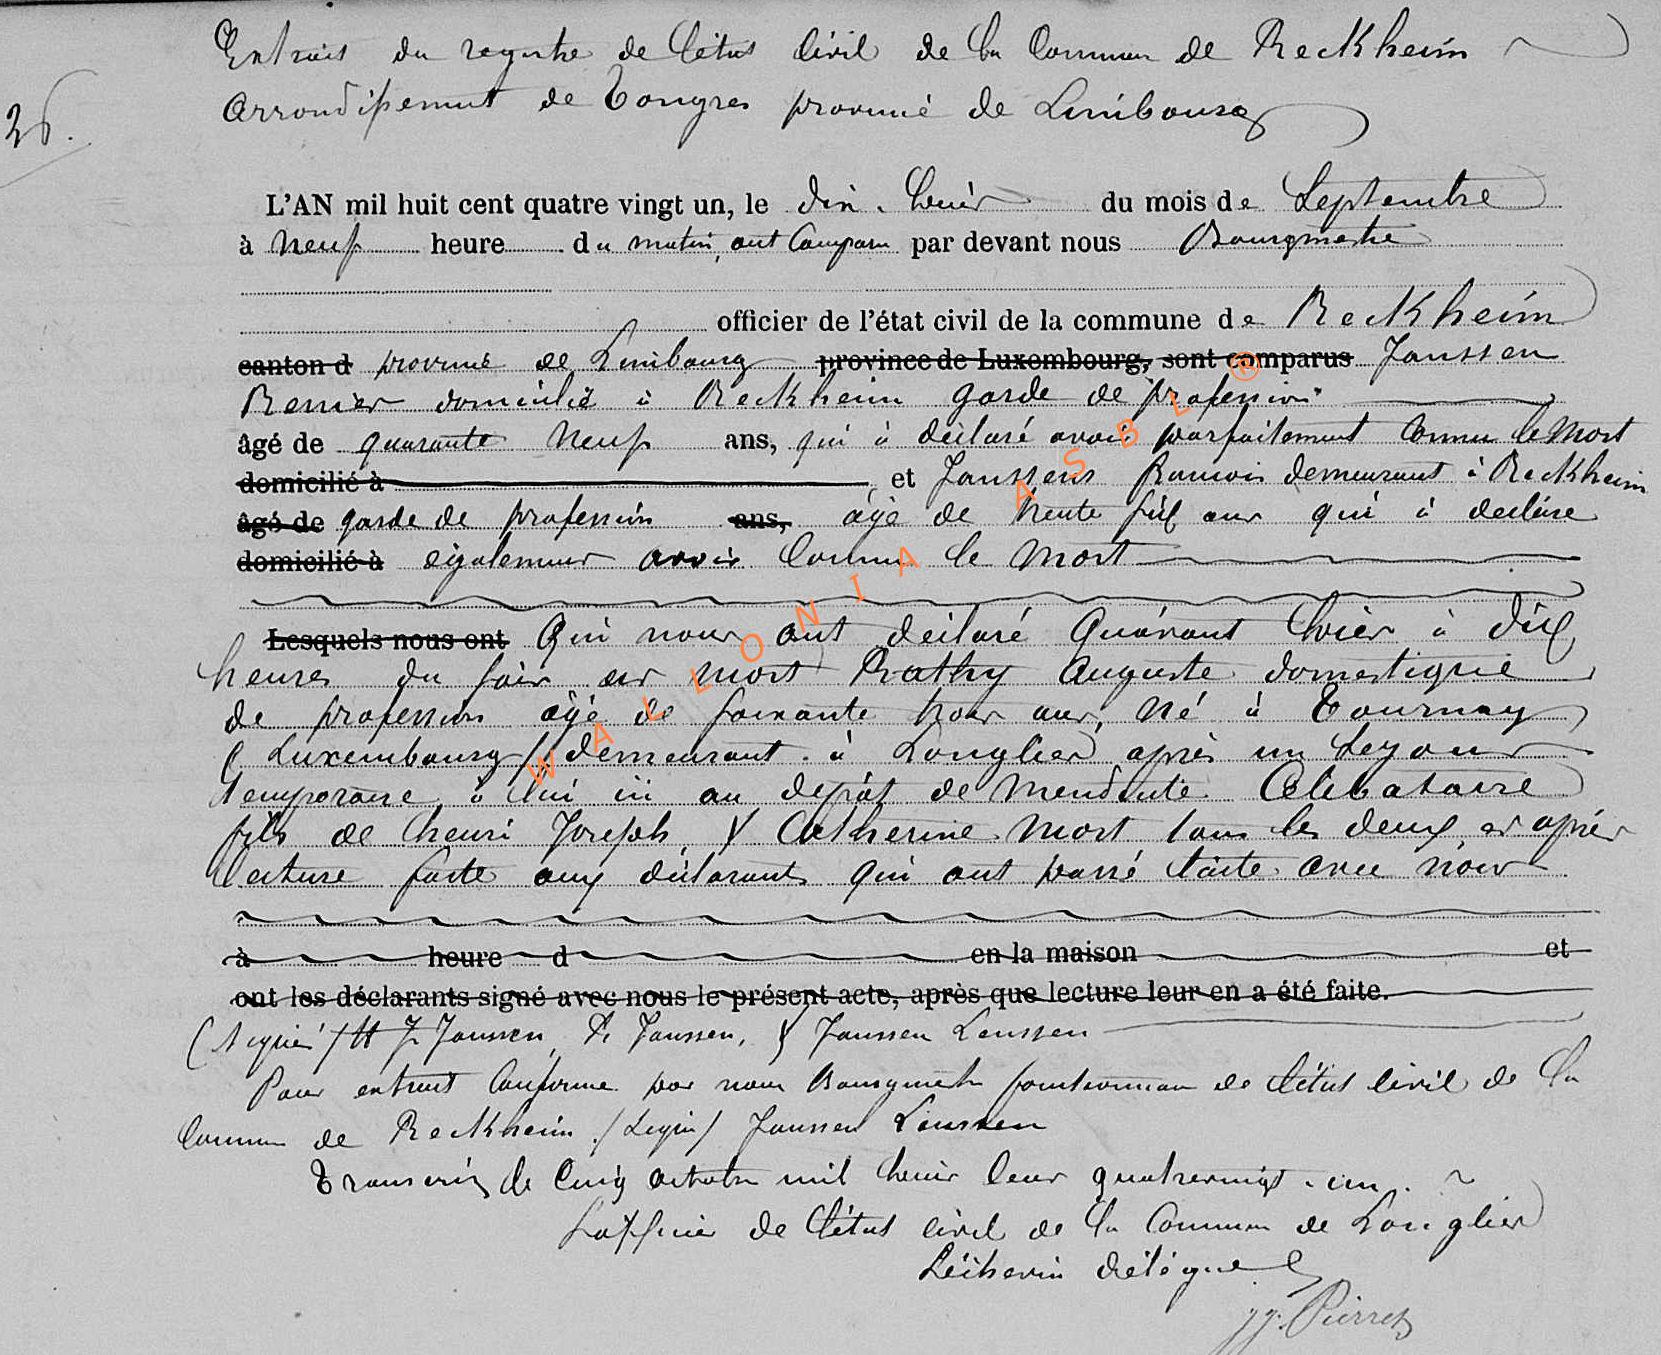 Extrait du registre de l'état civil de la Commune de Reckheim
26.
Arrondissement de Tongres province de Limbourg
L'AN mil huit cent quatre vingt un, le dix-huit du mois de Septembre
à neuf heure du matin, ont comparu par devant nous Bourgmestre
officier de l'état civil de la commune de Reckheim
canton d province de Limbourg province de Luxembourg, sont comparus Janssen
Renier domicilié à Reckheim garde de profession
âgé de quarante neuf ans, qui à déclaré avoir parfaitement connu le mort
domicilié à et Janssens demeurant à Reckheim
âgé de garde de profession ans, âgé de trente six ans qui à déclaré
domicilié à également avoir connu le mort
Lesquels nous ont Qui nous ont déclaré hier à dix
heures du soir est mort Rathy Auguste domestique
de profession âgé de soixante trois ans, né à Tournay
(Luxembourg) demeurant à Longlier après un séjour
temporaire à lui ici au dépôt de mendicité Célibataire
fils de henri Joseph, & Catherine mort tous les deux et après
lecture faite aux déclarants qui ont passé l'acte avec nous
à heure d en la maison et
ont les déclarants signé avec nous le présent acte, après que lecture leur en a été faite.
(signé) Janssen, Janssen, & Janssen Lenssen
Pour extrait conforme par nous Bourgmestre fonctionnaire de l'état civil de la
Commune de Reckheim /signé/ Janssen Lenssen
Transcrit le cinq octobre mil huit cent quatrevingt-un.
L'officier de l'état civil de la Commune de Longlier
L'échevin délégué
JJ. Pierret
WALLONIA ASBL ®